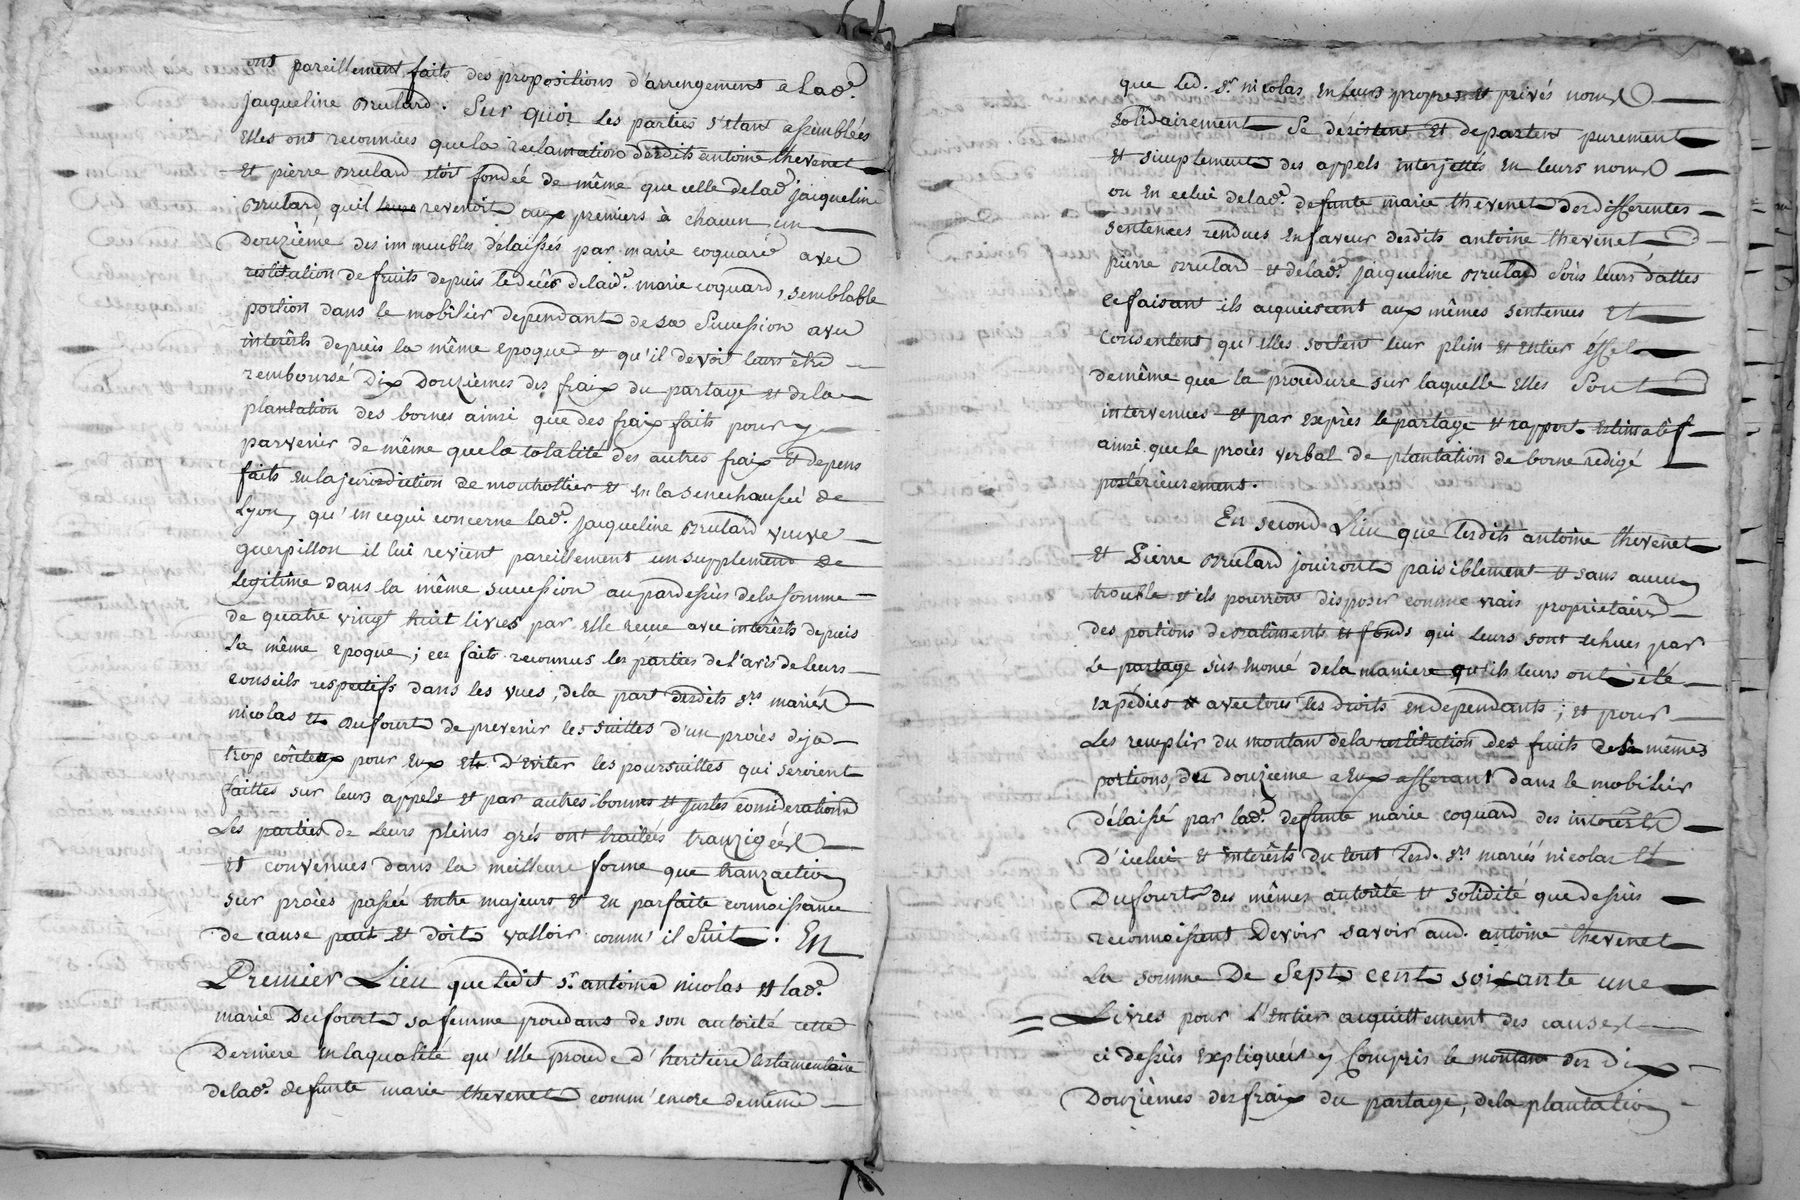 ont pareillement faits des propositions d'arrengement a lad.e
jacqueline Brulard. Sur quoi les parties s'etant assemblées
Elles ont reconnües que la reclamation desdits antoine thevenet
Et pierre Brulard etoit fondée de même que celle de lad.e jacqueline
Brulard, qu'il revenoit aux premiers à chacun un
Douzième des immeubles délaissés par marie coquard avec
restitution de fruits depuis le decès de lad.e marie coquard, semblable
portion dans le mobilier dependant de sa Succession avec
interêts depuis la même epoque et qu'il devoit leurs être
remboursé Dix Douzièmes des fraix du partage et de la
plantation des bornes ainsi que des fraix faits pour y
parvenir de même que la totalité des autres fraix et depens
faits en la jurisdiction de montrottier et en la senechaussée de
Lyon, qu'en ce qui concerne lad.e jacqueline Brulard veuve
guerpillon il lui revient pareillement un supplement de
Legitime dans la même succession au pardessus de la somme
de quatre vingt huit livres par elle recue avec interêts depuis
La même epoque; ces faits reconnus les parties de l'avis de leurs
conseils respectifs dans les vues, de la part desdits s.rs mariés
nicolas et Dufourt de prevenir les suittes d'un procès deja
trop coûteux pour eux et D'Eviter les poursuittes qui seroient
faittes sur leurs appels et par autres bonnes et justes considerations
Les parties de leurs pleins grés ont traitées tranzigées
Et convenues dans la meilleure forme que tranzaction
sur procès passée entre majeurs et en parfaite connoissance
de cause peut et doit valloir comm' il Suit. En
Premier Lieu que ledit s.r antoine nicolas et lad.e
marie Dufourt sa femme procedans de son autorité cette
Derniere en la qualité qu'elle procede d'heritiere testamentaire
de lad.e defunte marie thevenet comm' encore de même
que led. s.r nicolas en leurs propres et privés noms
Solidairement Se désistent et departent purement
et simplement des appels interjettés en leurs noms
ou en celui de lad.e defunte marie thevenet des differentes
sentences rendues en faveur desdits antoine thevenet
pierre Brulard et de lad.e jacqueline Brulard Sous leurs dattes
ce faisant ils acquiescent aux mêmes sentences et
Consentent qu'elles sortent leur plein et entier éffet
de même que la procedure sur laquelle elles Sont
intervenues et par exprès le partage et rapport Estimatif
ainsi que le procès verbal de plantation de borne redigé
postérieurement.
En Second Lieu que lesdits antoine thevenet
et Pierre Brulard jouiront paisiblement et sans aucun
trouble et ils pourront disposer comme vrais proprietaires
des portions de batiments et fonds qui leurs sont echues par
le partage sus enoncé de la maniere qu'ils leurs ont été
expédiées avec tous les droits en dependants; et pour
Les remplir du montan de la restitution des fruits de mêmes
portions, des douzieme a eux afferant dans le mobilier
délaissé par lad.e defunte marie coquard des interêts
D'icelui et interêts du tout lesd. s.rs mariés nicolas et
Dufourt des mêmes autorité et solidité que dessus
reconnoissent Devoir savoir aud. antoine thevenet
La somme De Sept cent soixante une
Livres pour l'entier acquittement des causes
ci dessus expliquées y Compris le montan des Dix
Douzièmes des fraix du partage, de la plantation